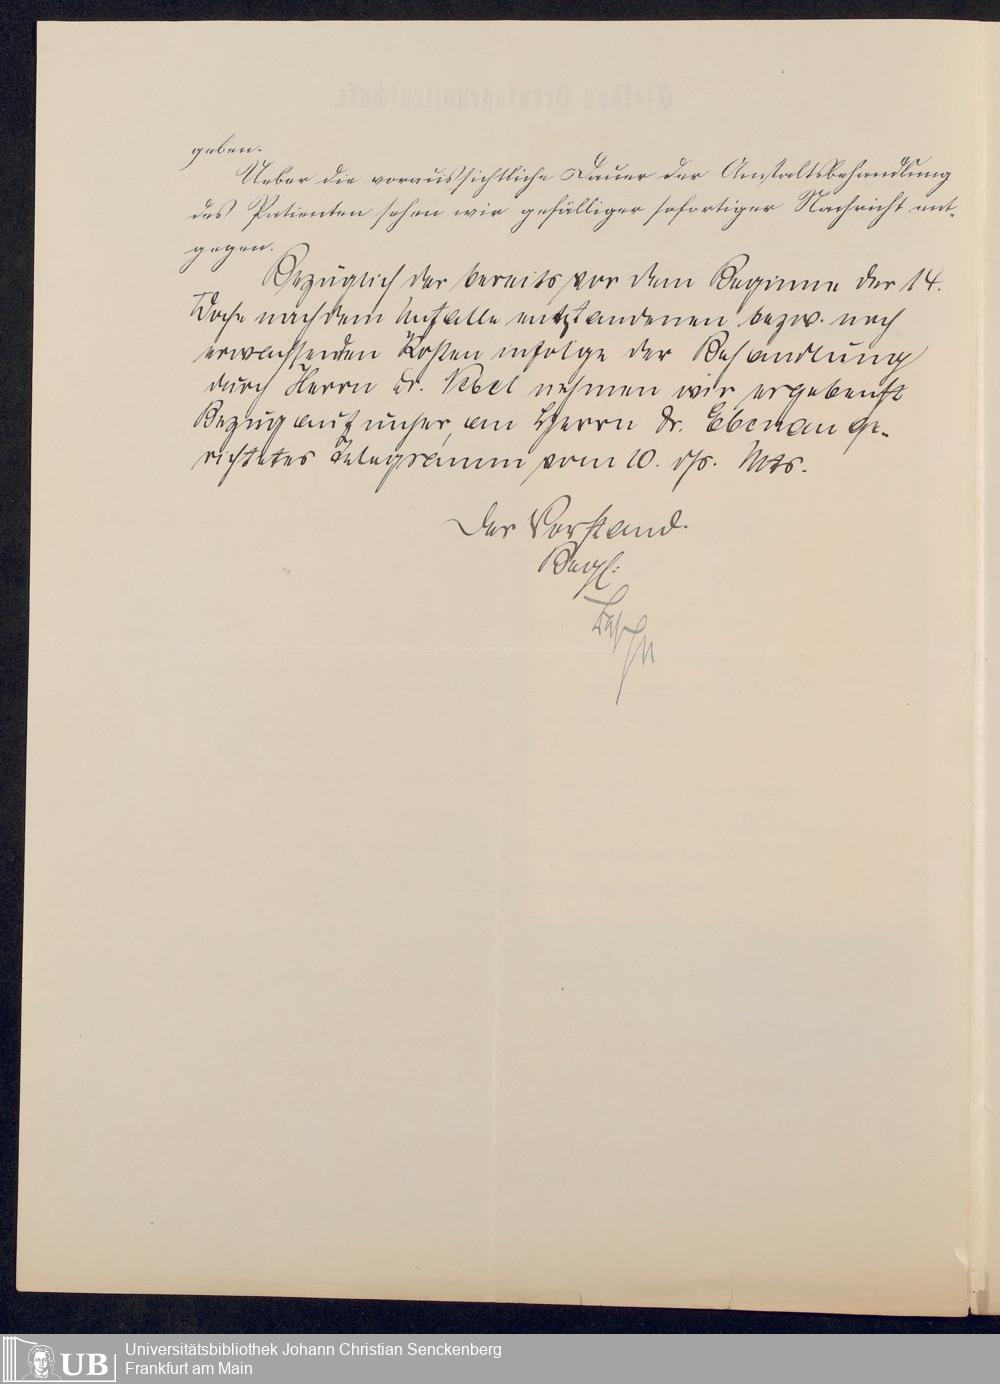 geben.
Ueber die voraussichtliche Dauer der Anstaltsbehandlung
des Patienten sehen wir gefälliger sofortiger Nachricht ent-
gegen.
Bezüglich der bereits vor dem Beginne der 14.
Woche nach dem Unfalle entstandenen bezw. noch
erwachsenden Kosten infolge der Behandlung
durch Herrn Dr. Nebel nehmen wir ergebenst
Bezug auf unser, an Herrn Dr. Ebenau ge-
richtetes Telegramm vom 10. ds. Mts.
Der Vorstand.
Universitätsbibliothek Johann Christian Senckenberg
Frankfurt am Main
UB